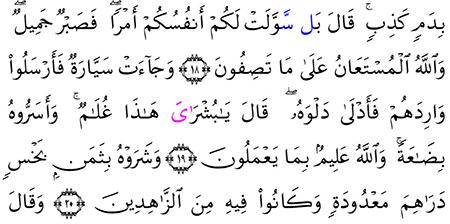 بِدَمٍ كَذِبٍۚ قَالَ بَل سَّوَّلَتْ لَكُمْ أَنفُسُكُمْ أَمْرًاۖ فَصَبْرٌ جَمِيلٌۖ
وَٱللَّهُ ٱلْمُسْتَعَانُ عَلَىٰ مَا تَصِفُونَ ١٨ وَجَآءَتْ سَيَّارَةٌ فَأَرْسَلُوا۟
وَارِدَهُمْ فَأَدْلَىٰ دَلْوَهُۥۖ قَالَ يَـٰبُشْرَاىَ هَـٰذَا غُلَـٰمٌۚ وَأَسَرُّوهُ
بِضَـٰعَةًۚ وَٱللَّهُ عَلِيمٌۢ بِمَا يَعْمَلُونَ ١٩ وَشَرَوْهُ بِثَمَنٍۭ بَخْسٍ
دَرَٰهِمَ مَعْدُودَةٍ وَكَانُوا۟ فِيهِ مِنَ ٱلزَّٰهِدِينَ ٢٠ وَقَالَ